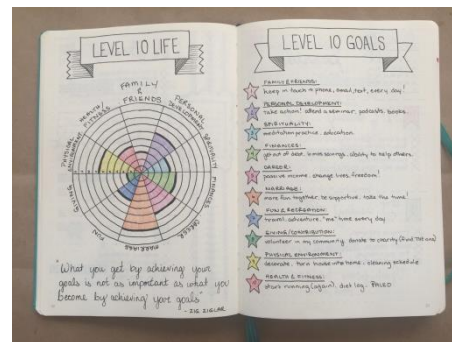 LEVEL 10 LIFE
FAMILY
&
FRIENDS
PERSONAL
DEVELOPMENT
SPIRITUALITY
FINANCES
CAREER
MARRIAGE
FUN
GIVING
PHYSICAL
ENVIRONMENT
HEALTH/
FITNESS
"What you get by achieving your
goals is not as important as what you
become by achieving your goals"
-ZIG ZIGLAR
LEVEL 10 GOALS
FAMILY & FRIENDS:
keep in touch = phone, email, text, every day!
PERSONAL DEVELOPMENT:
take action! attend a seminar, podcasts, books.
SPIRITUALITY:
meditation practice, education
FINANCES:
get out of debt, savings, ability to help others.
CAREER:
passive income, change lives, freedom!
MARRIAGE:
more fun together, be supportive, take the time!
FUN & RECREATION:
travel, adventure, "me" time every day
GIVING/CONTRIBUTION:
volunteer in my community, donate to charity (find one)
PHYSICAL ENVIRONMENT:
decorate, turn house into home, cleaning schedule
HEALTH & FITNESS:
start running (again), diet log, PALEO